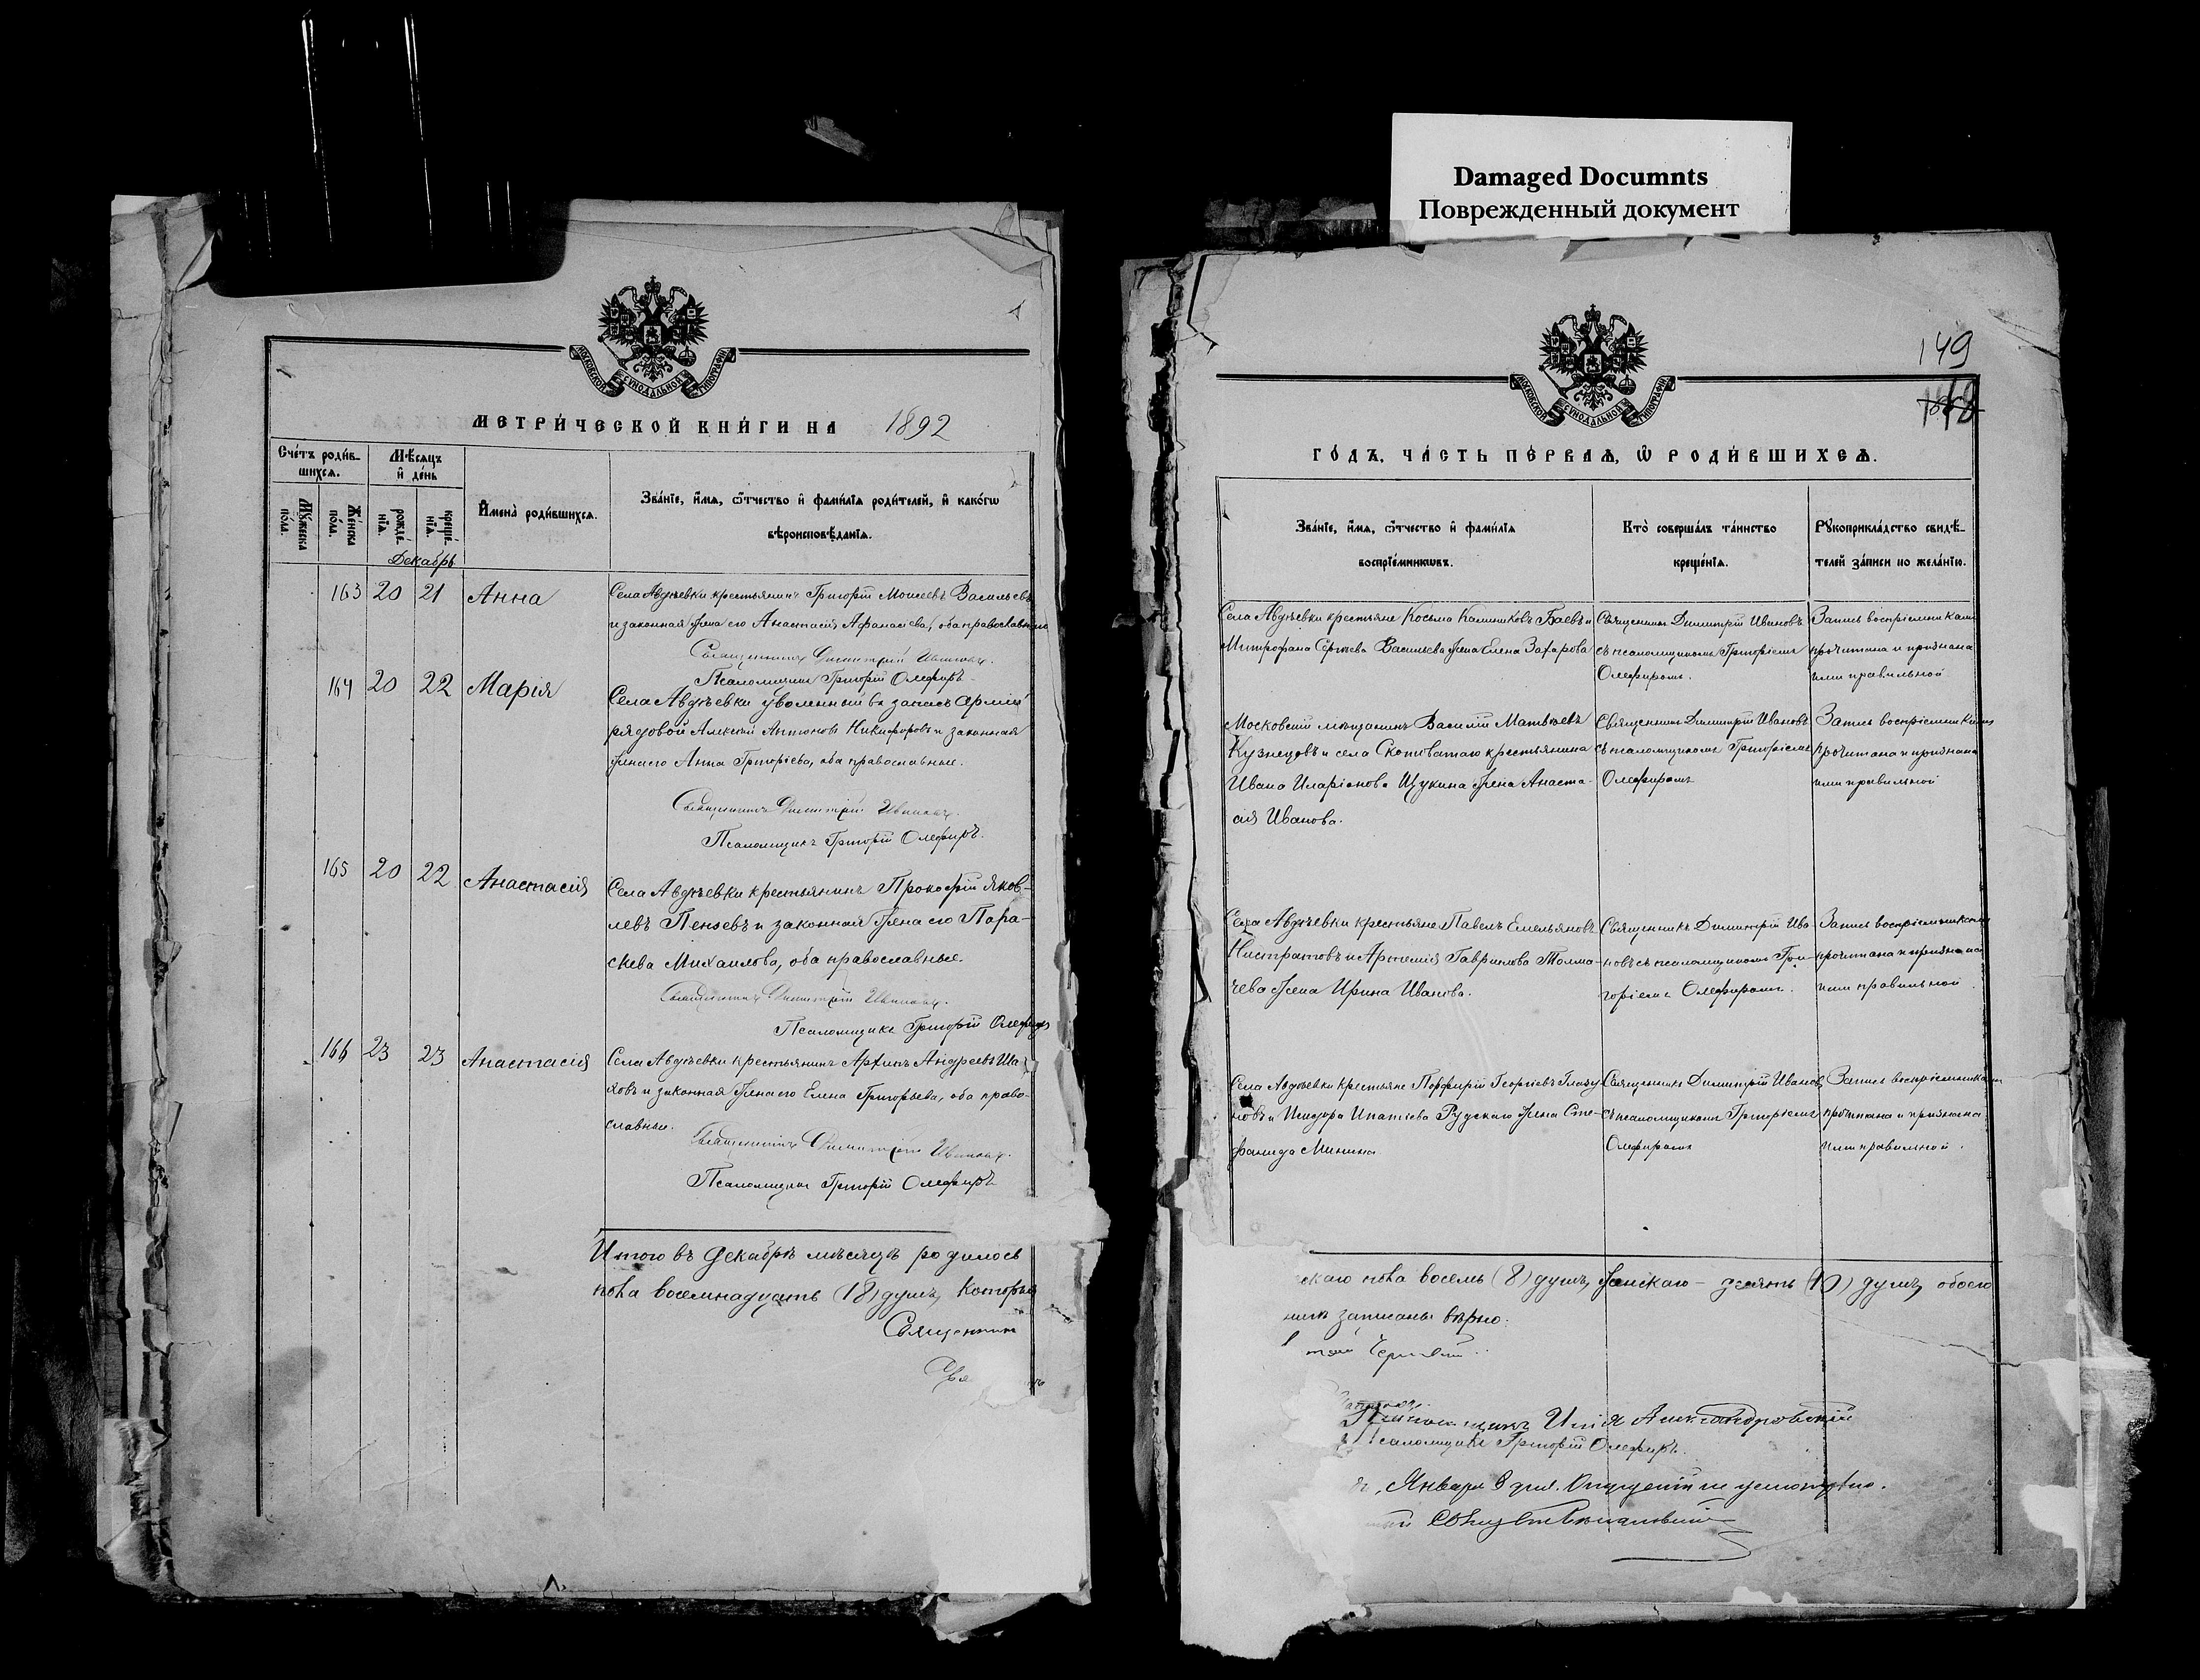 Damaged Documnts
Поврежденный документ
МОСКОВСКОЙ СУНОДАЛЬНОЙ ТИПОГРАФІИ
МЕТРИ́ЧЕСКОЙ КНИ́ГИ НА 1892
Сче́тъ роди́в-
шихсѧ.
Мѣ́сѧцъ
и҆ де́нь
Мꙋ́жеска
по́ла.
Же́нска
по́ла.
рожде́-
нїѧ.
креще́-
нїѧ.
И҆мена̀ роди́вшихсѧ.
Зва́нїе, и҆́мѧ, ѻ҆́тчество и҆ фами́лїѧ роди́телей, и҆ како́гѡ
вѣроисповѣ́данїѧ.
Декабрь
163 20 21 Анна
Села Авдѣевки крестьянинъ Григорій Моисеевъ Васильевъ
и законная жена его Анастасія Афанасіева, оба православные
Священникъ Димитрій Ивановъ.
Псаломщикъ Григорій Олефиръ.
164 20 22 Марія
Села Авдѣевки уволенный въ запасъ арміи
рядовой Алексѣй Антоновъ Никифоровъ и законная
жена его Анна Григоріева, оба православные.
Священникъ Димитрій Ивановъ.
Псаломщикъ Григорій Олефиръ.
165 20 22 Анастасія
Села Авдѣевки крестьянинъ Прокофій Яков-
левъ Пензевъ и законная жена его Пара-
скева Михаилова, оба православные.
Священникъ Димитрій Ивановъ.
Псаломщикъ Григорій Олефиръ
166 23 23 Анастасія
Села Авдѣевки крестьянинъ Архипъ Андреевъ Ша-
ховъ и законная жена его Елена Григорьева, оба право-
славные.
Священникъ Димитрій Ивановъ.
Псаломщикъ Григорій Олефиръ
Итого въ декабрѣ мѣсяцѣ родилось
пола восемнадцать (18) душъ, которые
Священник
149
МОСКОВСКОЙ СУНОДАЛЬНОЙ ТИПОГРАФІИ
ГО́ДЪ, ЧА́СТЬ ПЕ́РВАѦ, Ѡ҆ РОДИ́ВШИХСѦ.
Зва́нїе, и҆́мѧ, ѻ҆́тчество и҆ фами́лїѧ
воспрїе́мникѡвъ.
Кто̀ соверша́лъ та́инство
креще́нїѧ.
Рꙋкоприкла́дство свидѣ́-
телей за́писи по жела́нїю.
Села Авдѣевки крестьяне Косьма Калинковъ Баевъ и
Митрофана Сергѣева Васильева жена Елена Захарова
Священникъ Димитрій Ивановъ
съ псаломщикомъ Григоріемъ
Олефиромъ.
Запись воспріемниками
прочитана и признана
ими правильной
Московскій мѣщанинъ Василій Матвѣевъ
Кузнецовъ и села Скотоватаго крестьянина
Ивана Иларіонова Щукина жена Анаста-
сія Иванова.
Священникъ Димитрій Ивановъ
съ псаломщикомъ Григоріемъ
Олефиромъ
Запись воспріемниками
прочитана и признана
ими правильной
Села Авдѣевки крестьяне Павелъ Емельяновъ
Нистратовъ и Артемія Гаврилова Толма-
чева жена Ирина Иванова.
Священникъ Димитрій Ива-
новъ съ псаломщикомъ Гри-
горіемъ Олефиромъ.
Запись воспріемниками
прочитана и признана
ими правильной
Села Авдѣевки крестьяне Порфирій Георгіевъ Глазу-
новъ и Исидора Ипатіева Рудскаго жена Сте-
фанида Минина
Священникъ Димитрій Ивановъ
съ псаломщикомъ Григоріемъ
Олефиромъ
Запись воспріемниками
прочитана и признана
ими правильной.
скаго пола восемь (8) душъ, женскаго – десять (10) душъ, обоего
записаны вѣрно.
Псаломщикъ Илія Александровскій
Псаломщикъ Григорій Олефиръ.
Января 8 дня.